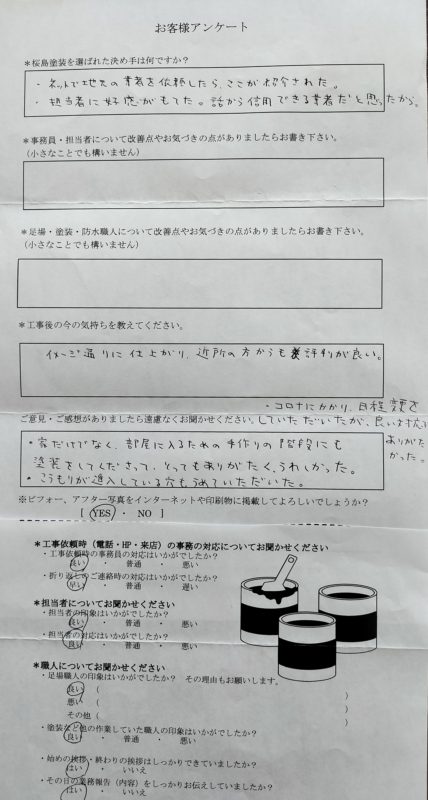 お客様アンケート
＊桜島塗装を選ばれた決め手は何ですか？
・ネットで地元の業者を依頼したら、ここが紹介された。
・担当者に好感がもてた。話から信用できる業者だと思ったから。
＊事務員・担当者について改善点やお気づきの点がありましたらお書き下さい。
（小さなことでも構いません）
＊足場・塗装・防水職人について改善点やお気づきの点がありましたらお書き下さい。
（小さなことでも構いません）
＊工事後の今の気持ちを教えてください。
イメージ通りに仕上がり、近所の方からも評判が良い。
・コロナにかかり、日程変更を
ご意見・ご感想がありましたら遠慮なくお聞かせください。
していただいたが、
ありがた
かった。
・家だけでなく、部屋に入るための手作りの階段にも
塗装をしてくださって、とってもありがたく、うれしかった。
・こうもりが進入している穴もうめていただいた。
※ビフォー、アフター写真をインターネットや印刷物に掲載してよろしいでしょうか？
[ YES ・ NO ]
＊工事依頼時（電話・HP・来店）の事務の対応についてお聞かせください
・工事依頼時の事務員の対応はいかがでしたか？
良い ・ 普通 ・ 悪い
・折り返しのご連絡時の対応はいかがでしたか？
早い ・ 普通 ・ 遅い
＊担当者についてお聞かせください
・担当者の印象はいかがでしたか？
良い ・ 普通 ・ 悪い
・担当者の対応はいかがでしたか？
良い ・ 普通 ・ 悪い
＊職人についてお聞かせください
・足場職人の印象はいかがでしたか？ その理由もお願いします。
良い （ ）
悪い （ ）
その他（ ）
・塗装など他の作業していた職人の印象はいかがでしたか？
良い ・ 普通 ・ 悪い
・始めの挨拶・終わりの挨拶はしっかりできていましたか？
はい ・ いいえ
・その日の業務報告（内容）をしっかりお伝えしていましたか？
はい ・ いいえ